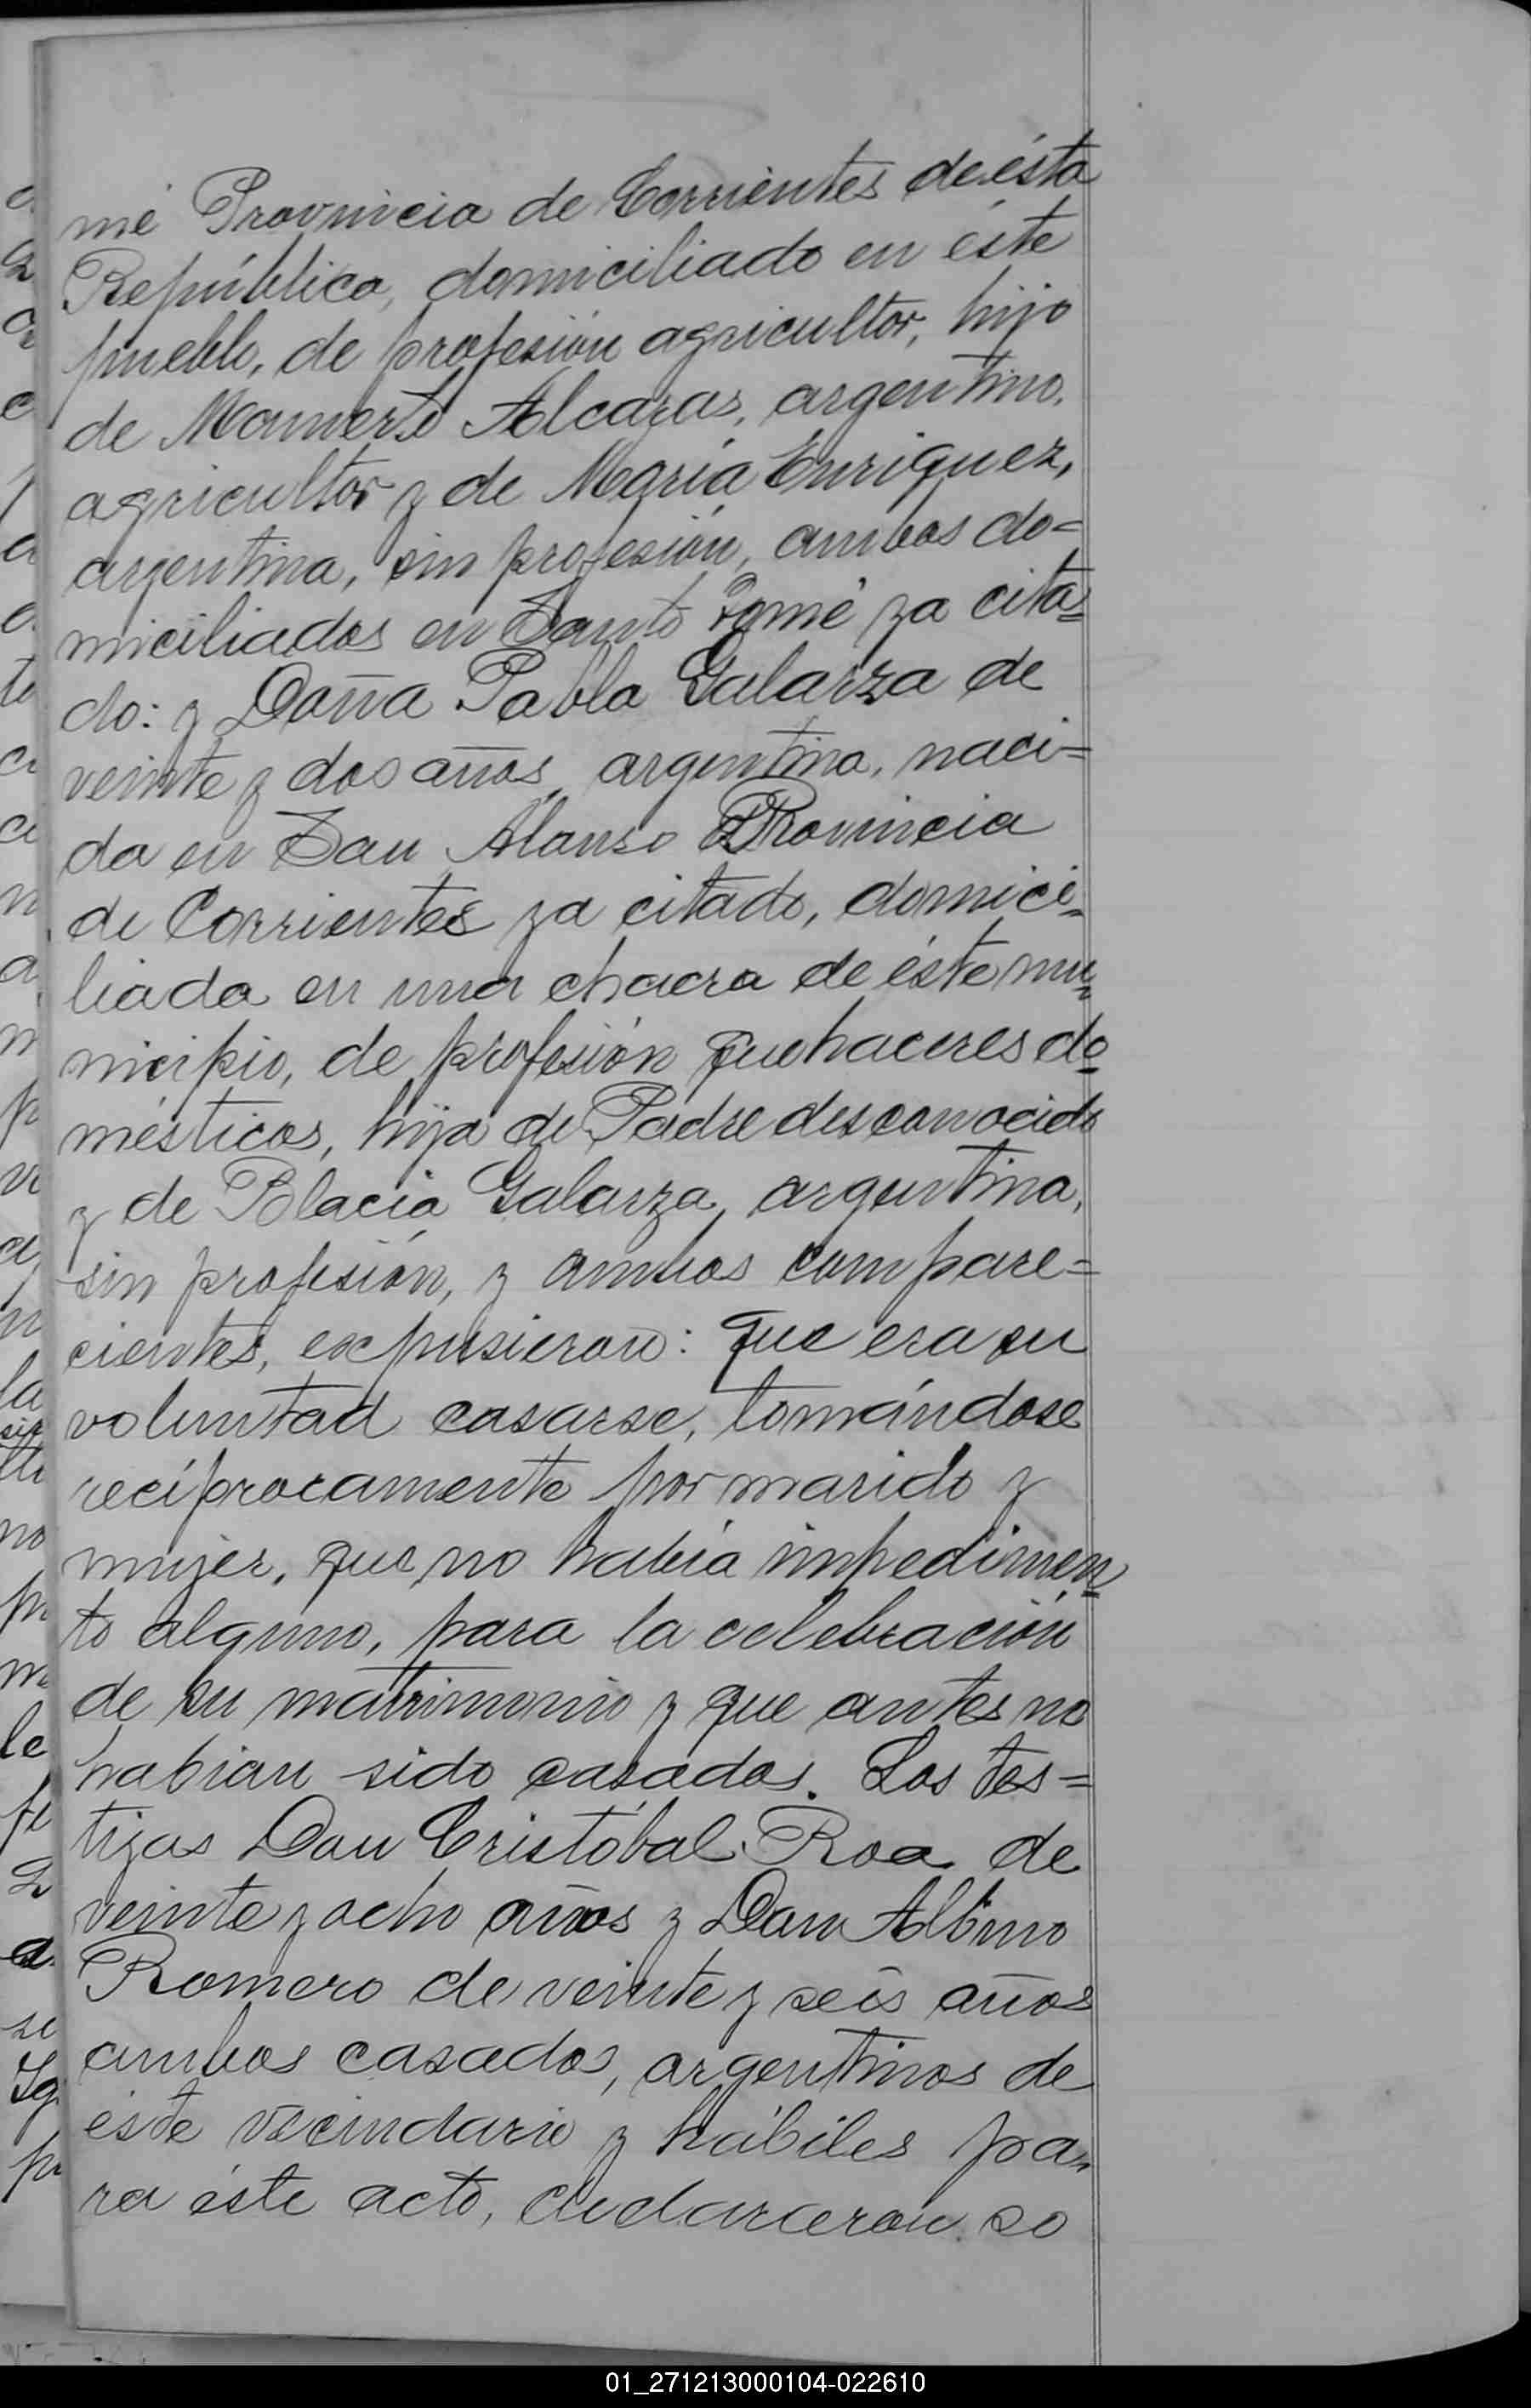 mé Provincia de Corrientes de ésta
República, domiciliado en éste
pueblo, de profesión agricultor, hijo
de Mamerto Alcaras, argentino,
agricultor y de María Enriquez,
argentina, sin profesión, ambos do=
miciliados en Santo Tomé ya cita=
do: y Doña Pabla Galarza de
veinte y dos años, argentina, naci=
da en San Alonso Provincia
de Corrientes ya citado, domici=
liada en una chacra de éste mu=
nicipio, de profesión quehaceres do=
mésticos, hija de Padre desconocido
y de Galarza, argentina,
sin profesión, y ambos compare=
cientes, expusieron: que era su
voluntad casarse, tomándose
recíprocamente por marido y
mujer, que no había impedimen=
to alguno, para la celebración
de su matrimonio y que antes no
habian sido casados. Los tes=
tigos Don Cristóbal Roa de
veinte y ocho años y Don Albino
Romero de veinte y seis años
ambos casados, argentinos de
este vecindario y hábiles pa=
ra éste acto, declararon so
01_271213000104-022610